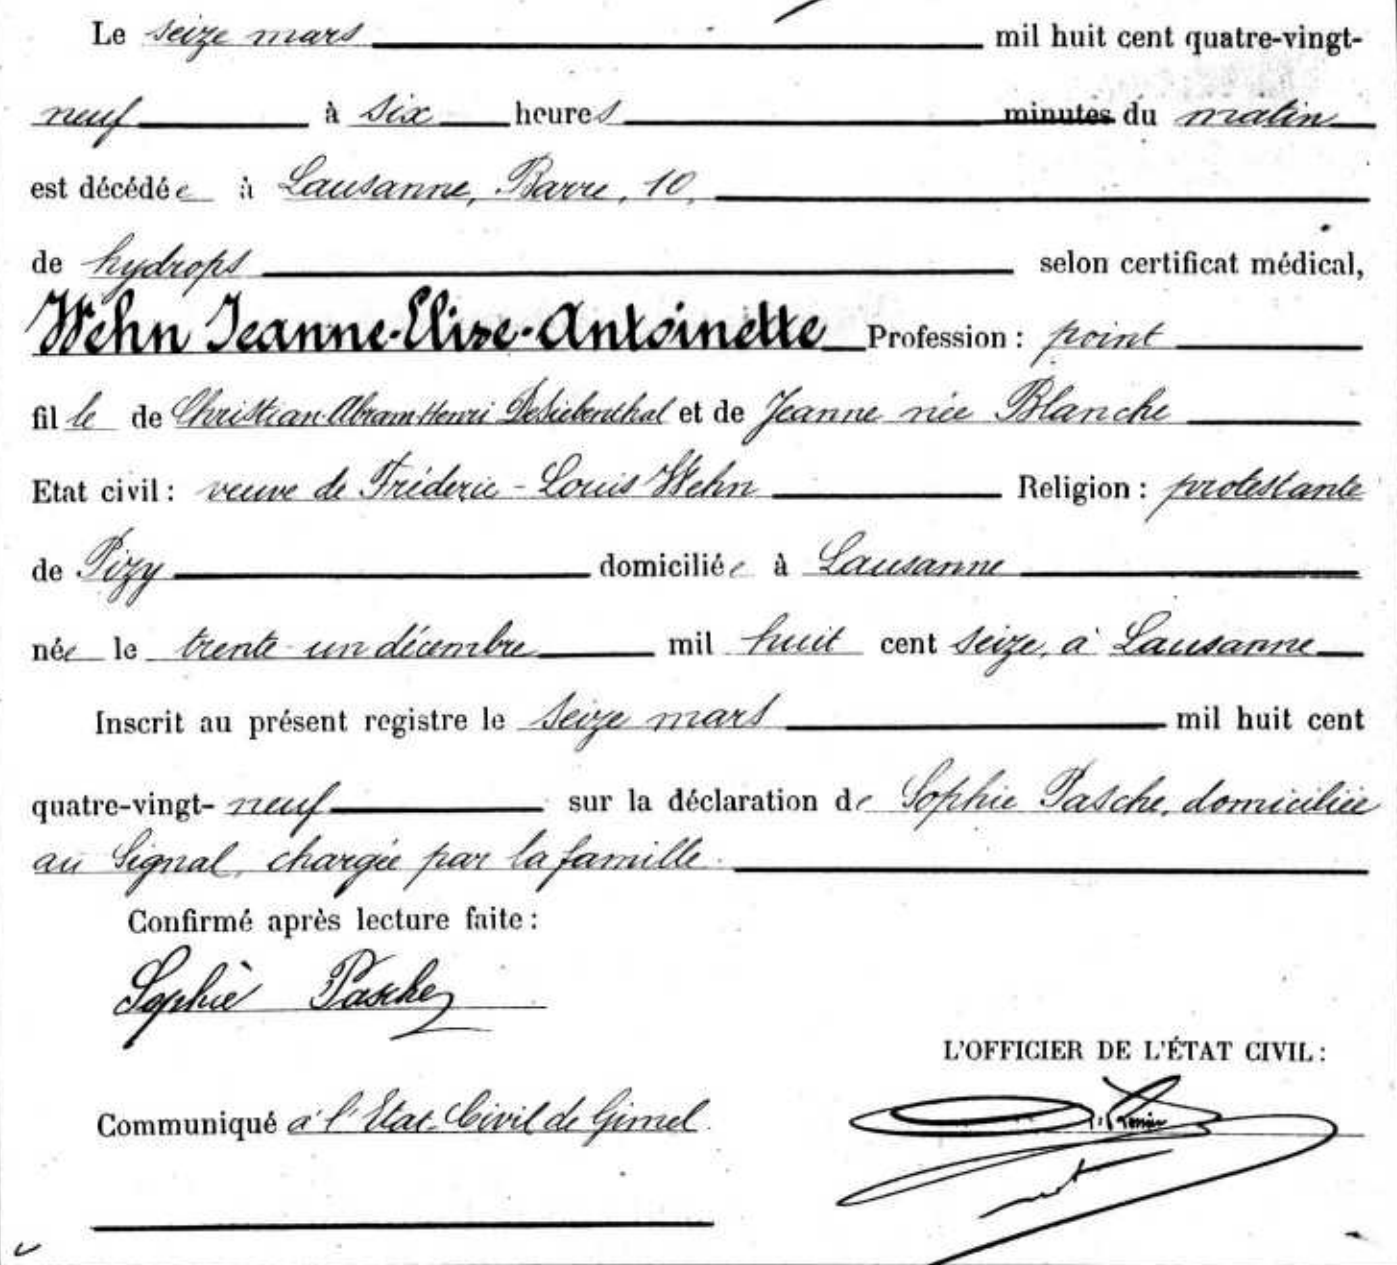 Le seize mars mil huit cent quatre-vingt-
neuf à six heures minutes du matin
est décédée à Lausanne, Barre, 10,
de hydrops selon certificat médical,
Wehn Jeanne-Elise-Antoinette Profession : point
fille de Christian-Abram-Henri DeSiebenthal et de Jeanne née Blanche
Etat civil : veuve de Fréderic-Louis Wehn Religion : protestante
de Pizy domiciliée à Lausanne
née le trente-un décembre mil huit cent seize, à Lausanne
Inscrit au présent registre le seize mars mil huit cent
quatre-vingt-neuf sur la déclaration de Sophie Pasche, domiciliée
au Signal, chargée par la famille.
Confirmé après lecture faite :
Sophie Pasche
L'OFFICIER DE L'ÉTAT CIVIL :
Communiqué à l'Etat-Civil de Gimel.